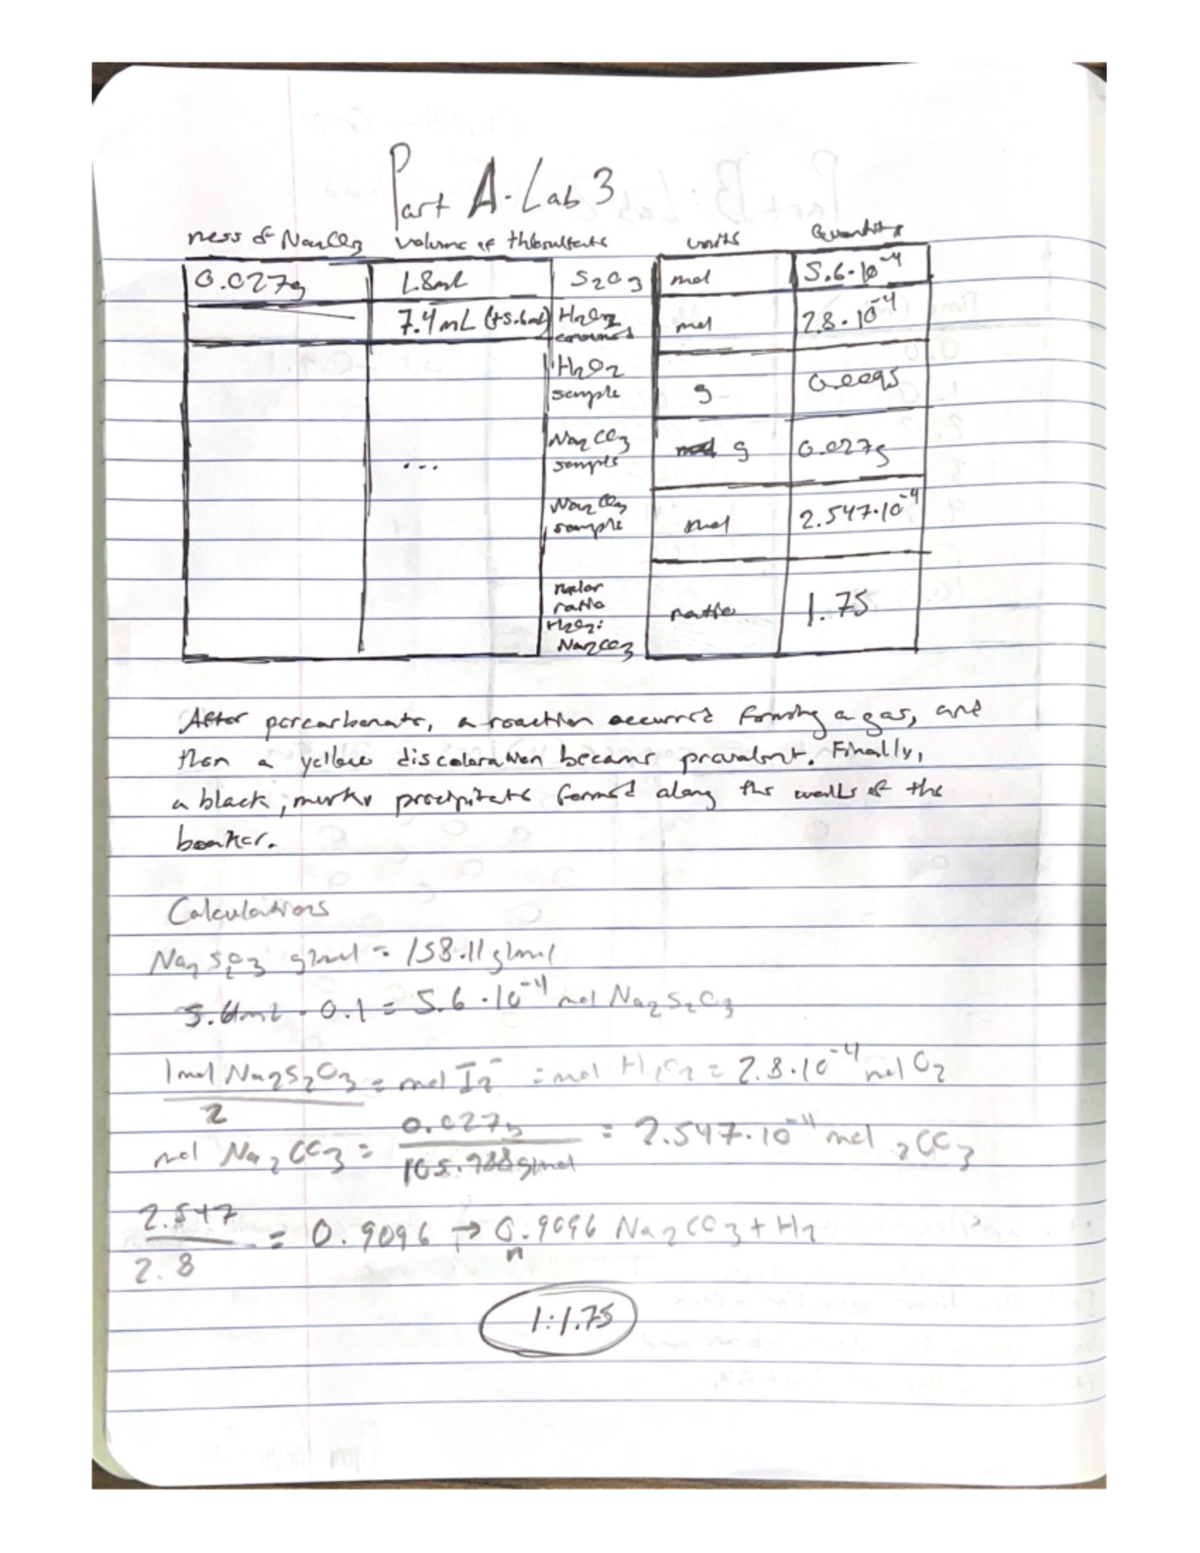 Part A-Lab 3
mess of Na2CO3 volume of thiosulfate units Quantity
0.027g 1.8mL S2O3 mol 5.6·10^-4
7.4mL (+5.6mL) H2O2 consumed mol 2.8·10^-4
H2O2 sample g 0.0095
Na2CO3 sample g 0.027g
...
Na2CO3 sample mol 2.547·10^-4
molar ratio H2O2: Na2CO3 ratio 1.75
After percarbonate, a reaction occurred forming a gas, and
then a yellow discoloration became prevalent. Finally,
a black, murky precipitate formed along the walls of the
beaker.
Calculations
Na2S2O3 g/mol = 158.11g/mol
5.6mL · 0.1 = 5.6·10^-4 mol Na2S2O3
1mol Na2S2O3 / 2 = mol I2^- = mol H2O2 = 2.8·10^-4 mol O2
mol Na2CO3 = 0.027g / 105.988g/mol = 2.547·10^-4 mol 2CO3
2.547 / 2.8 = 0.9096 → 0.9096 Na2CO3 + H2
n
1:1.75